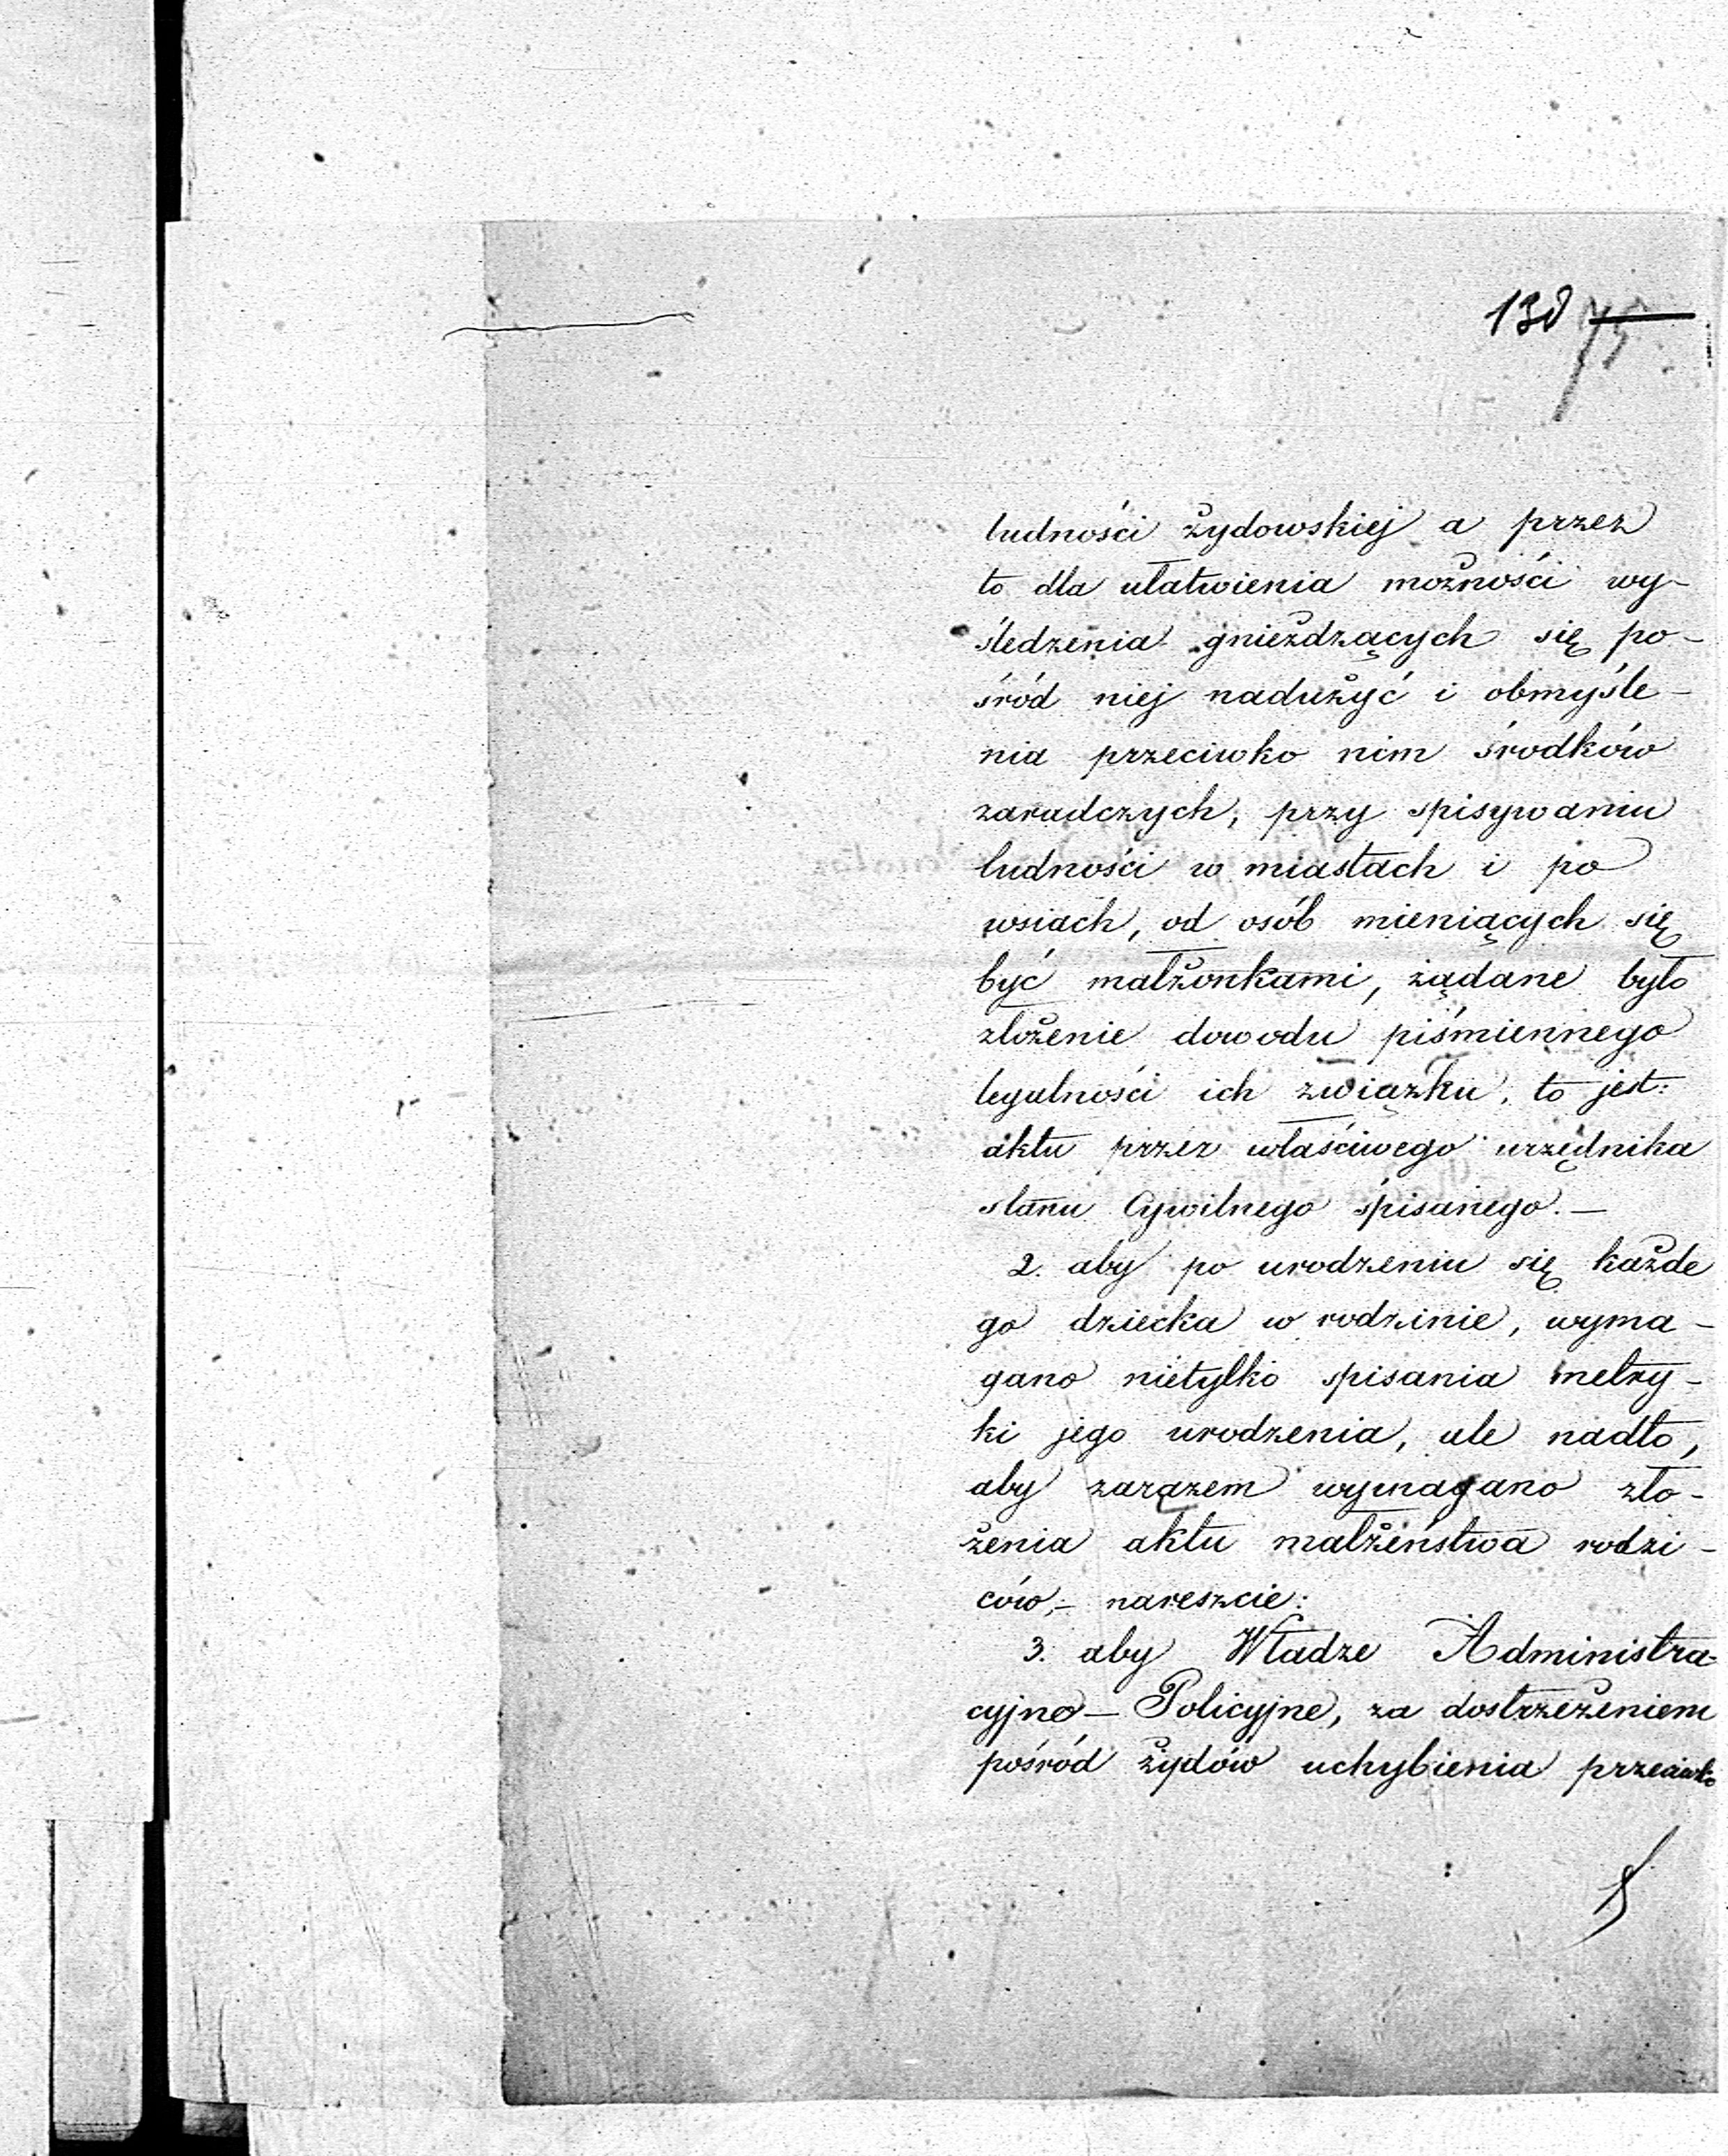 138 75
ludności żydowskiej a przez
to dla ułatwienia możności wy-
śledzenia gnieżdżących się po-
śród niej nadużyć i obmyśle-
nia przeciwko nim środków
zaradczych, przy spisywaniu
ludności w miastach i po
wsiach, od osób mieniących się
być małżonkami, żądane było
złożenie dowodu piśmiennego
legalności ich związku, to jest:
aktu przez właściwego urzędnika
stanu Cywilnego spisanego.—
2. aby po urodzeniu się każde
go dziecka w rodzinie, wyma-
gano nietylko spisania metry-
ki jego urodzenia, ale nadto,
aby zarazem wymagano zło-
żenia aktu małżeństwa rodzi-
ców,- nareszcie:
3. aby Władze Administra-
cyjno-Policyjne, za dostrzeżeniem
pośród żydów uchybienia przeciwko